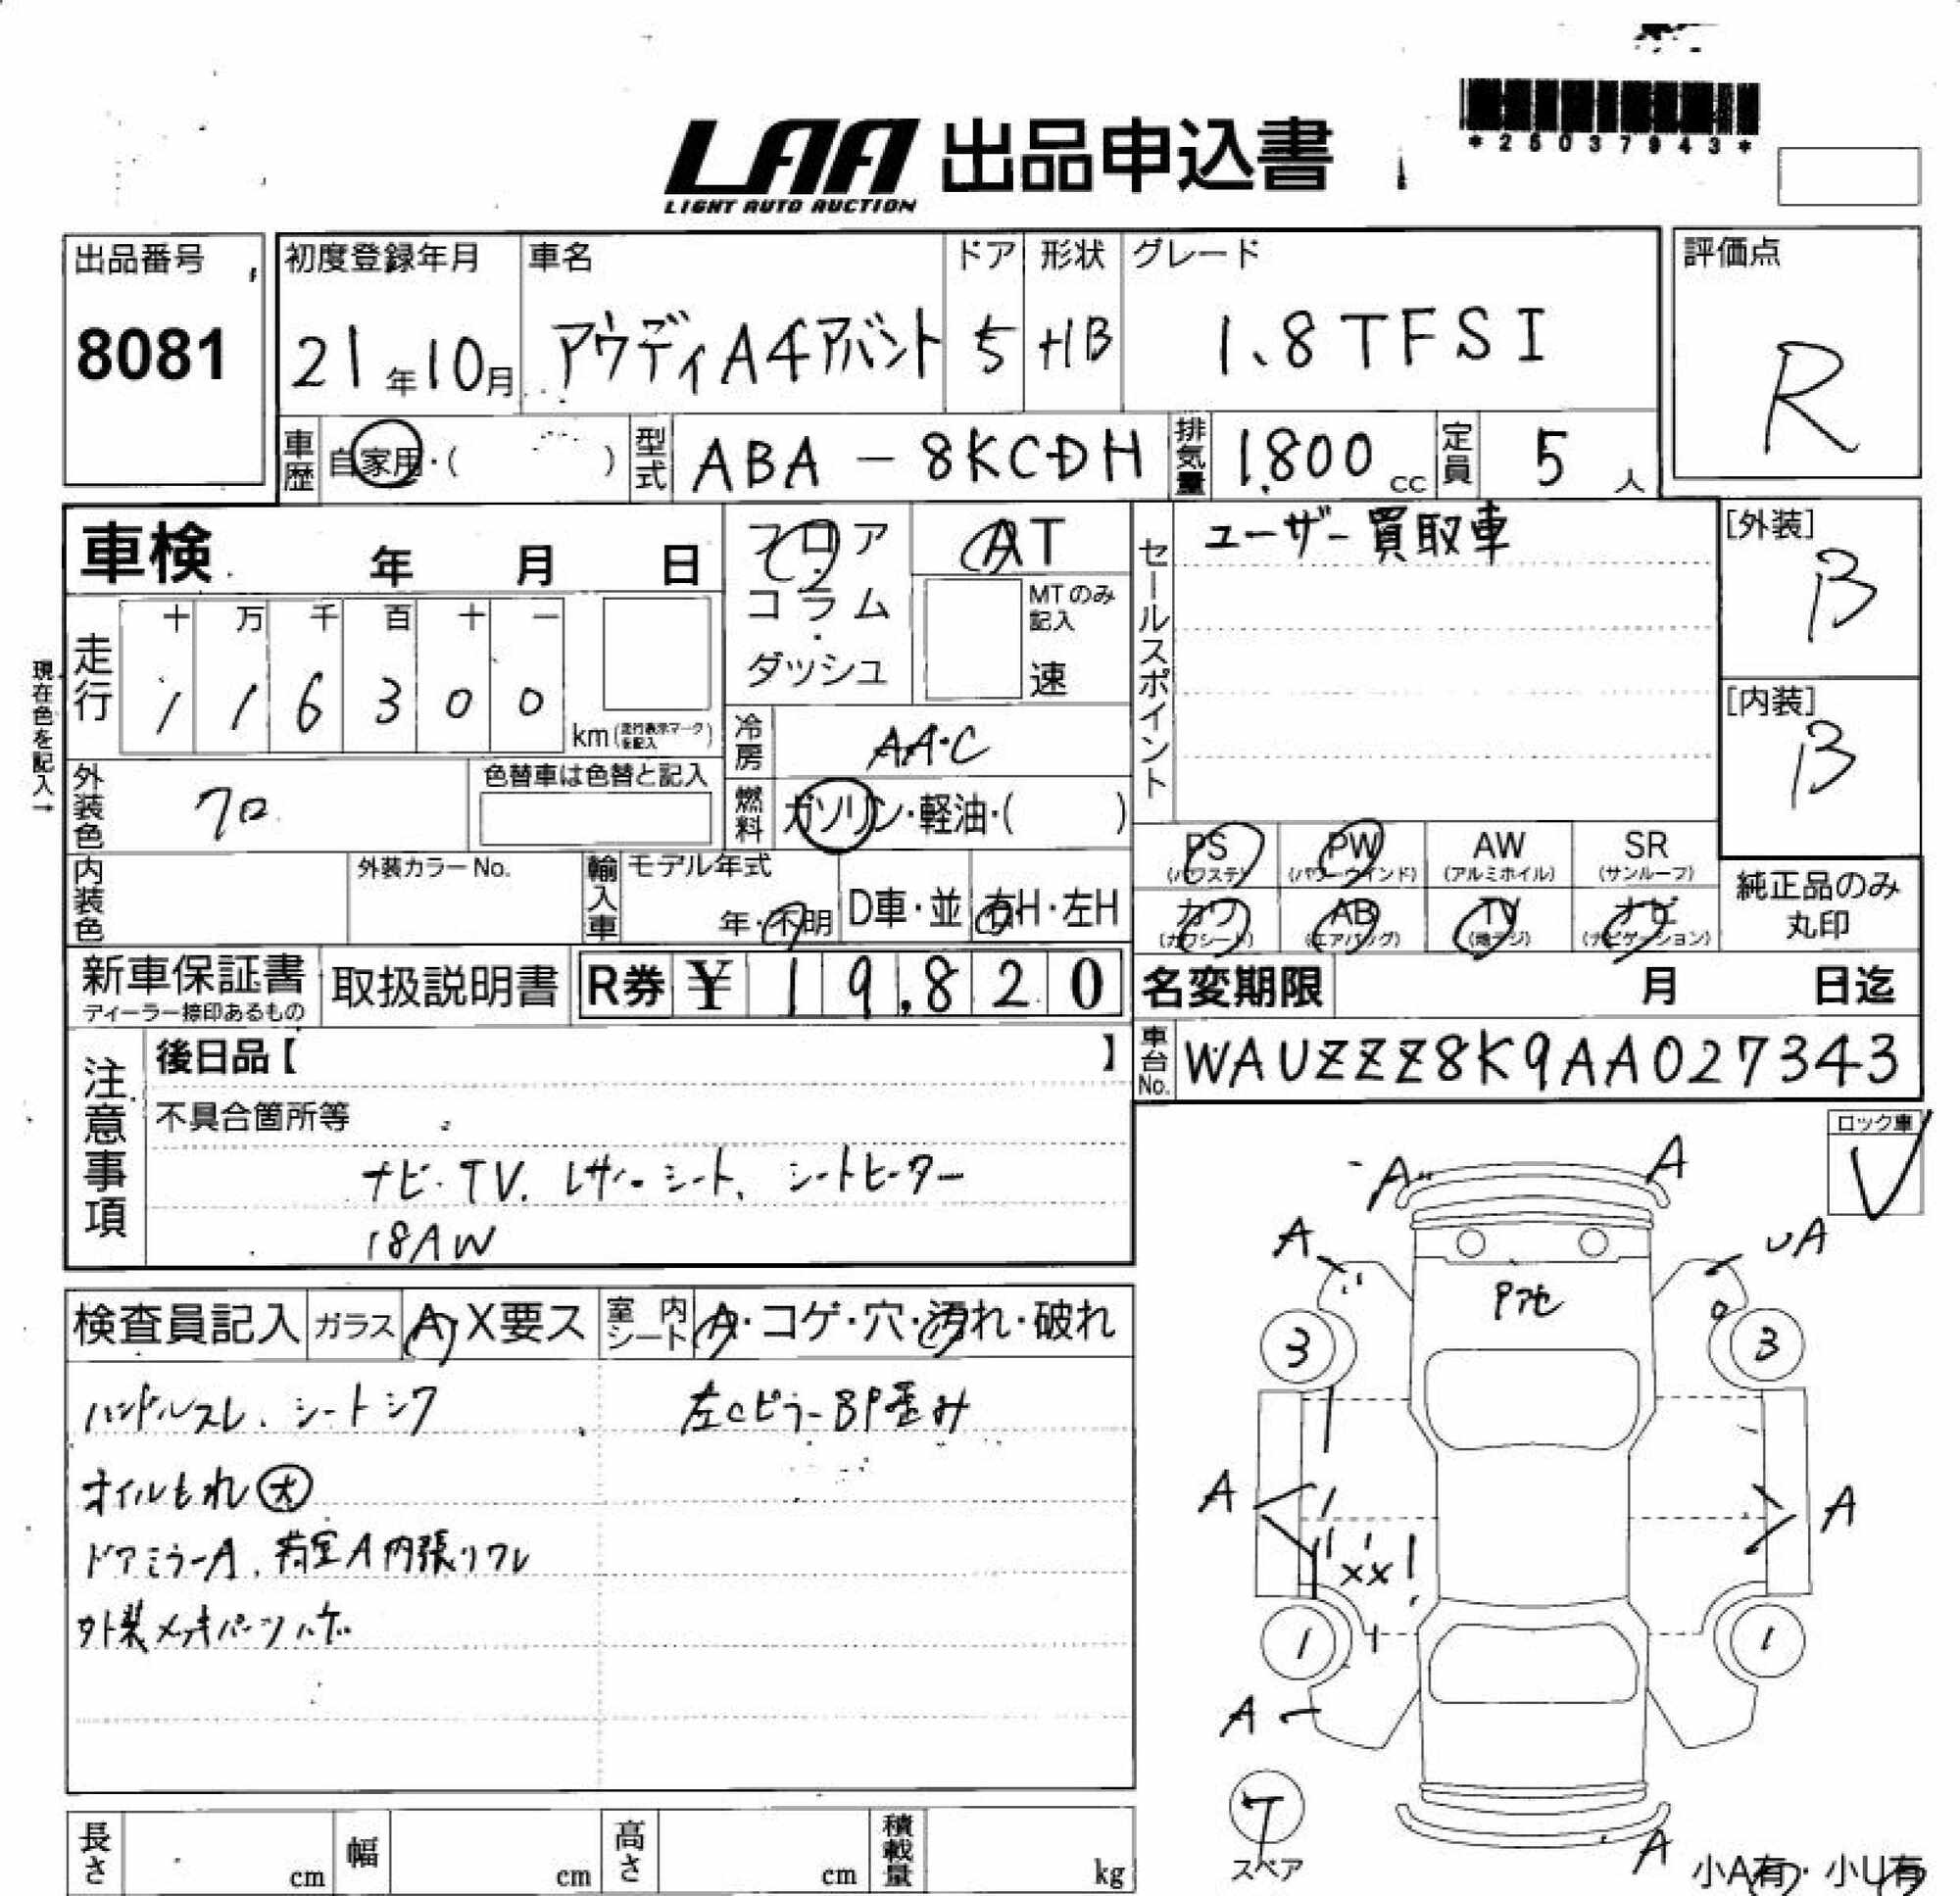 *25037943*
LAA 出品申込書
LIGHT AUTO AUCTION
出品番号
8081
初度登録年月
21年10月
車名
アウディA4アバント
ドア
5
形状
HB
グレード
1.8TFSI
評価点
R
車歴
自家用・( )
型式
ABA-8KCDH
排気量
1,800cc
定員
5人
車検 年 月 日
フロア
コラム
・
ダッシュ
AT
MTのみ
記入
速
セールスポイント
ユーザー買取車
[外装]
B
[内装]
B
現在色を記入→
走行
十 万 千 百 十 一
1 1 6 3 0 0
km(走行表示マークを記入)
冷房
AAC
外装色
クロ
色替車は色替と記入
燃料
ガソリン・軽油・( )
PS
(パワステ)
PW
(パワーウインド)
AW
(アルミホイル)
SR
(サンルーフ)
カワ
(カワシート)
AB
(エアバッグ)
TV
(地デジ)
ナビ
(ナビゲーション)
純正品のみ
丸印
内装色
外装カラーNo.
輸入車
モデル年式
年・不明
D車・並
右H・左H
新車保証書
ディーラー捺印あるもの
取扱説明書
R券 ¥19,820
名変期限 月 日迄
車台No.
WAUZZZ8K9AA027343
注意事項
後日品【 】
不具合箇所等
ナビ・TV. レザーシート、シートヒーター
18AW
ロック車
V
検査員記入
ガラス
A・X要ス
室内シート
A・コゲ・穴・汚れ・破れ
ハンドルスレ、シートシワ
左CピラーBP歪み
オイルもれ大
ドアミラーA、荷室A内張りワレ
外装メッキパーツハゲ
A A
A UA
Pアセ
3 3
A A
XX
1 1
A
T
スペア
A
小A有・小U有
長さ cm
幅 cm
高さ cm
積載量 kg